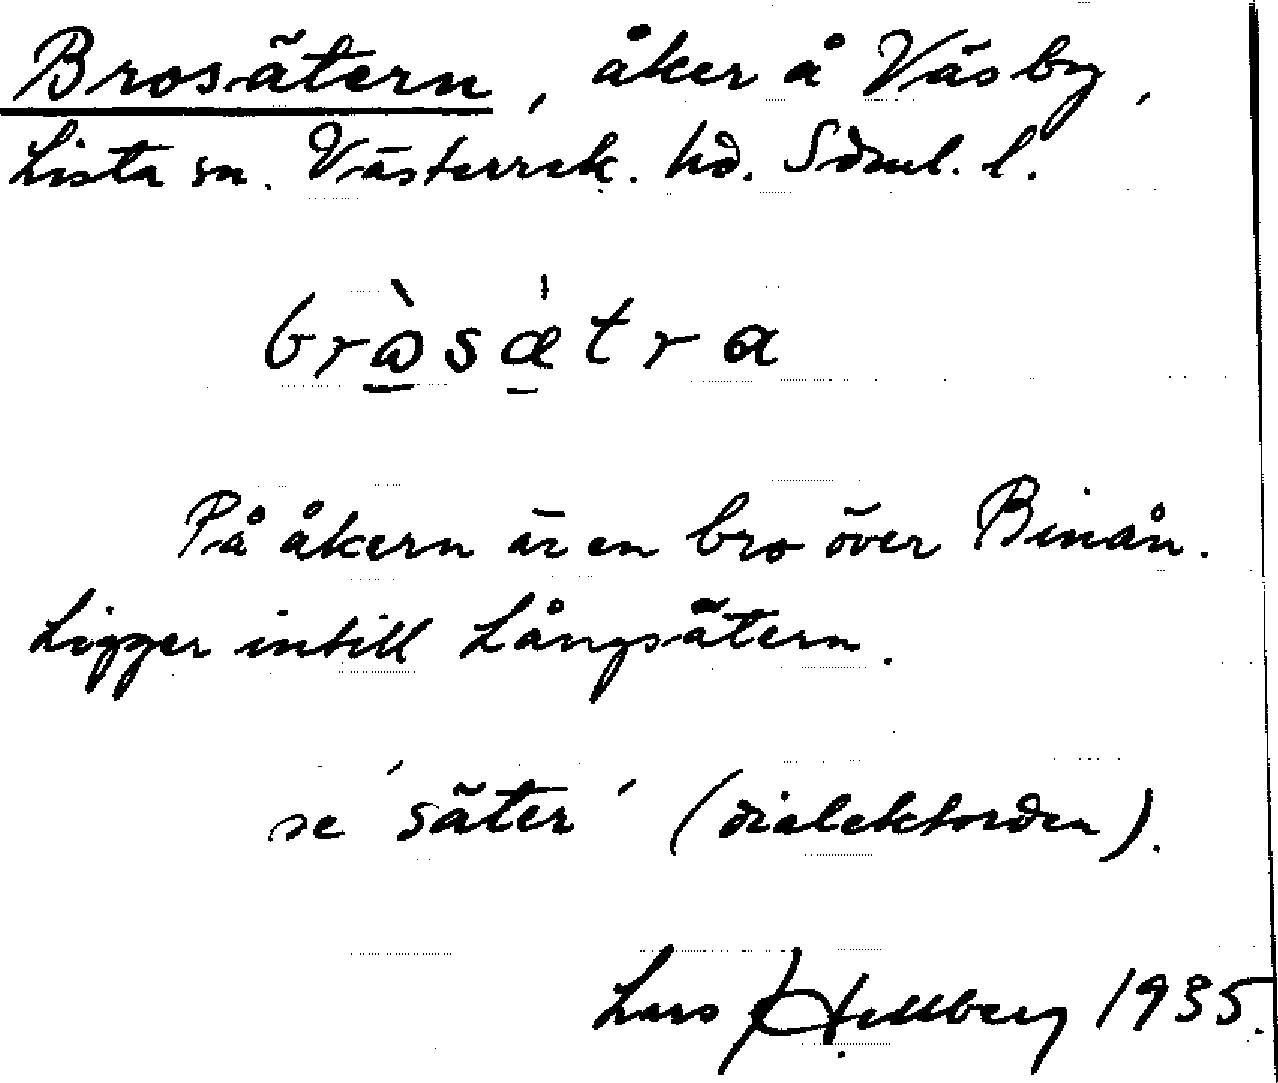 Brosätern, åker å Väsby,
Lista sn. Västerrek. hd. Södml. l.
bròsætra
På åkern är en bro över Binån.
Ligger intill Långsätern.
se 'säter' (dialektorden).
Lars Hellberg 1935.